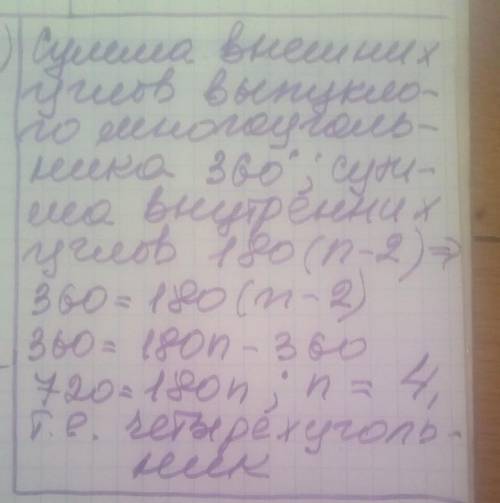 ) Сумма внешних
углов выпукло-
го многоуголь-
ника 360°; сум-
ма внутренних
углов 180(n-2)⇒
360=180(n-2)
360=180n-360
720=180n; n=4,
т.е. четырёхуголь-
ник